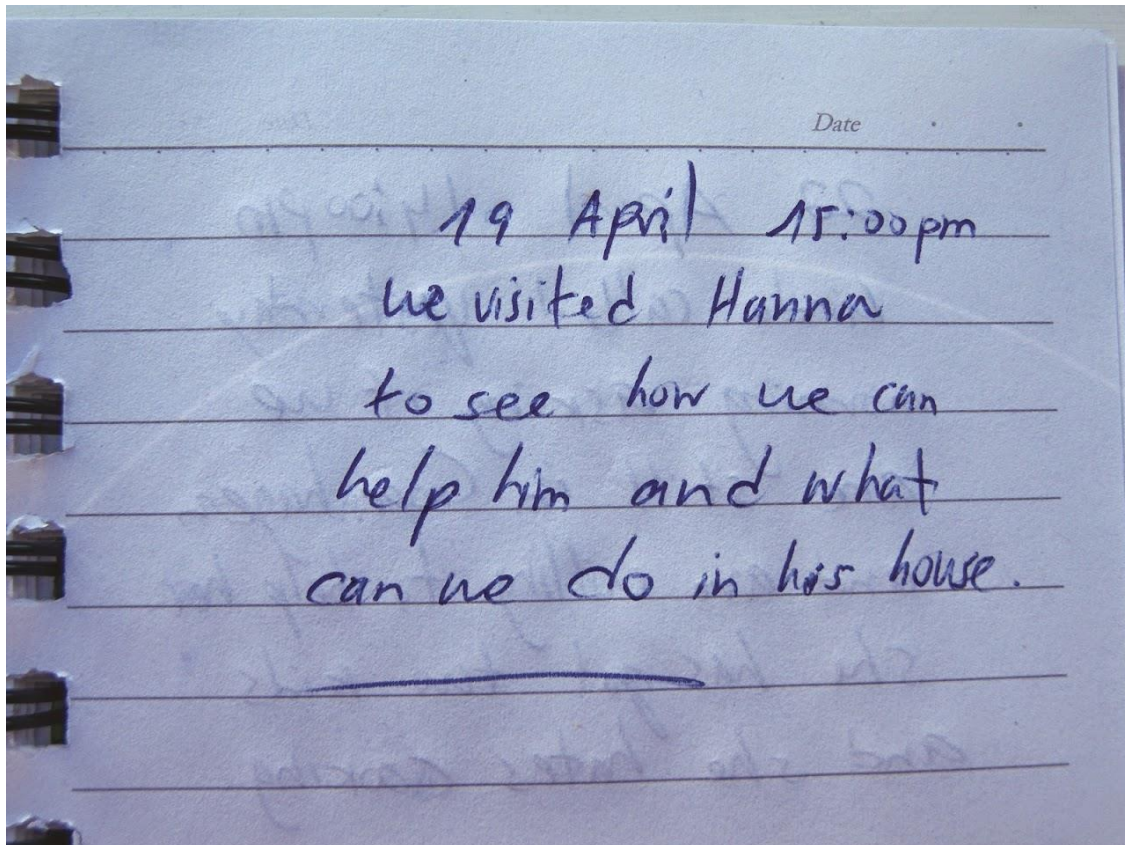 Date
19 April 15:00pm
we visited Hanna
to see how we can
help him and what
can we do in his house.